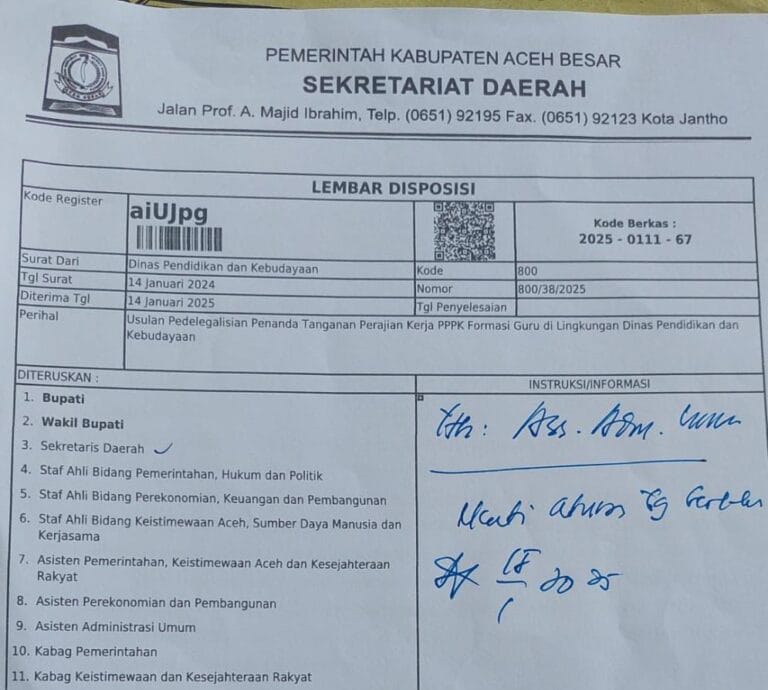 PEMERINTAH KABUPATEN ACEH BESAR
SEKRETARIAT DAERAH
Jalan Prof. A. Majid Ibrahim, Telp. (0651) 92195 Fax. (0651) 92123 Kota Jantho
LEMBAR DISPOSISI
Kode Register
aiUJpg
Kode Berkas :
2025 - 0111 - 67
Surat Dari Dinas Pendidikan dan Kebudayaan Kode 800
Tgl Surat 14 Januari 2024 Nomor 800/38/2025
Diterima Tgl 14 Januari 2025 Tgl Penyelesaian
Perihal Usulan Pedelegalisian Penanda Tanganan Perajian Kerja PPPK Formasi Guru di Lingkungan Dinas Pendidikan dan
Kebudayaan
DITERUSKAN : INSTRUKSI/INFORMASI
1. Bupati
2. Wakil Bupati
3. Sekretaris Daerah
4. Staf Ahli Bidang Pemerintah, Hukum dan Politik
5. Staf Ahli Bidang Perekonomian, Keuangan dan Pembangunan
6. Staf Ahli Bidang Keistimewaan Aceh, Sumber Daya Manusia dan
Kerjasama
7. Asisten Pemerintahan, Keistimewaan Aceh dan Kesejahteraan
Rakyat
8. Asisten Perekonomian dan Pembangunan
9. Asisten Administrasi Umum
10. Kabag Pemerintahan
11. Kabag Keistimewaan dan Kesejahteraan Rakyat
Yth: Ass. Adm. Umum
aturan yg
2025